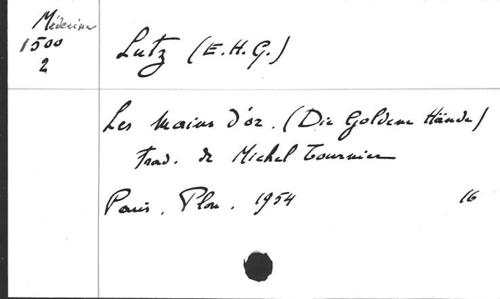 Médecine
1500
2
Lutz (E.H.G.)
Les Mains d'or. (Die Goldene Hände)
Trad. de Michel Tournier
Paris. Plon. 1954 16